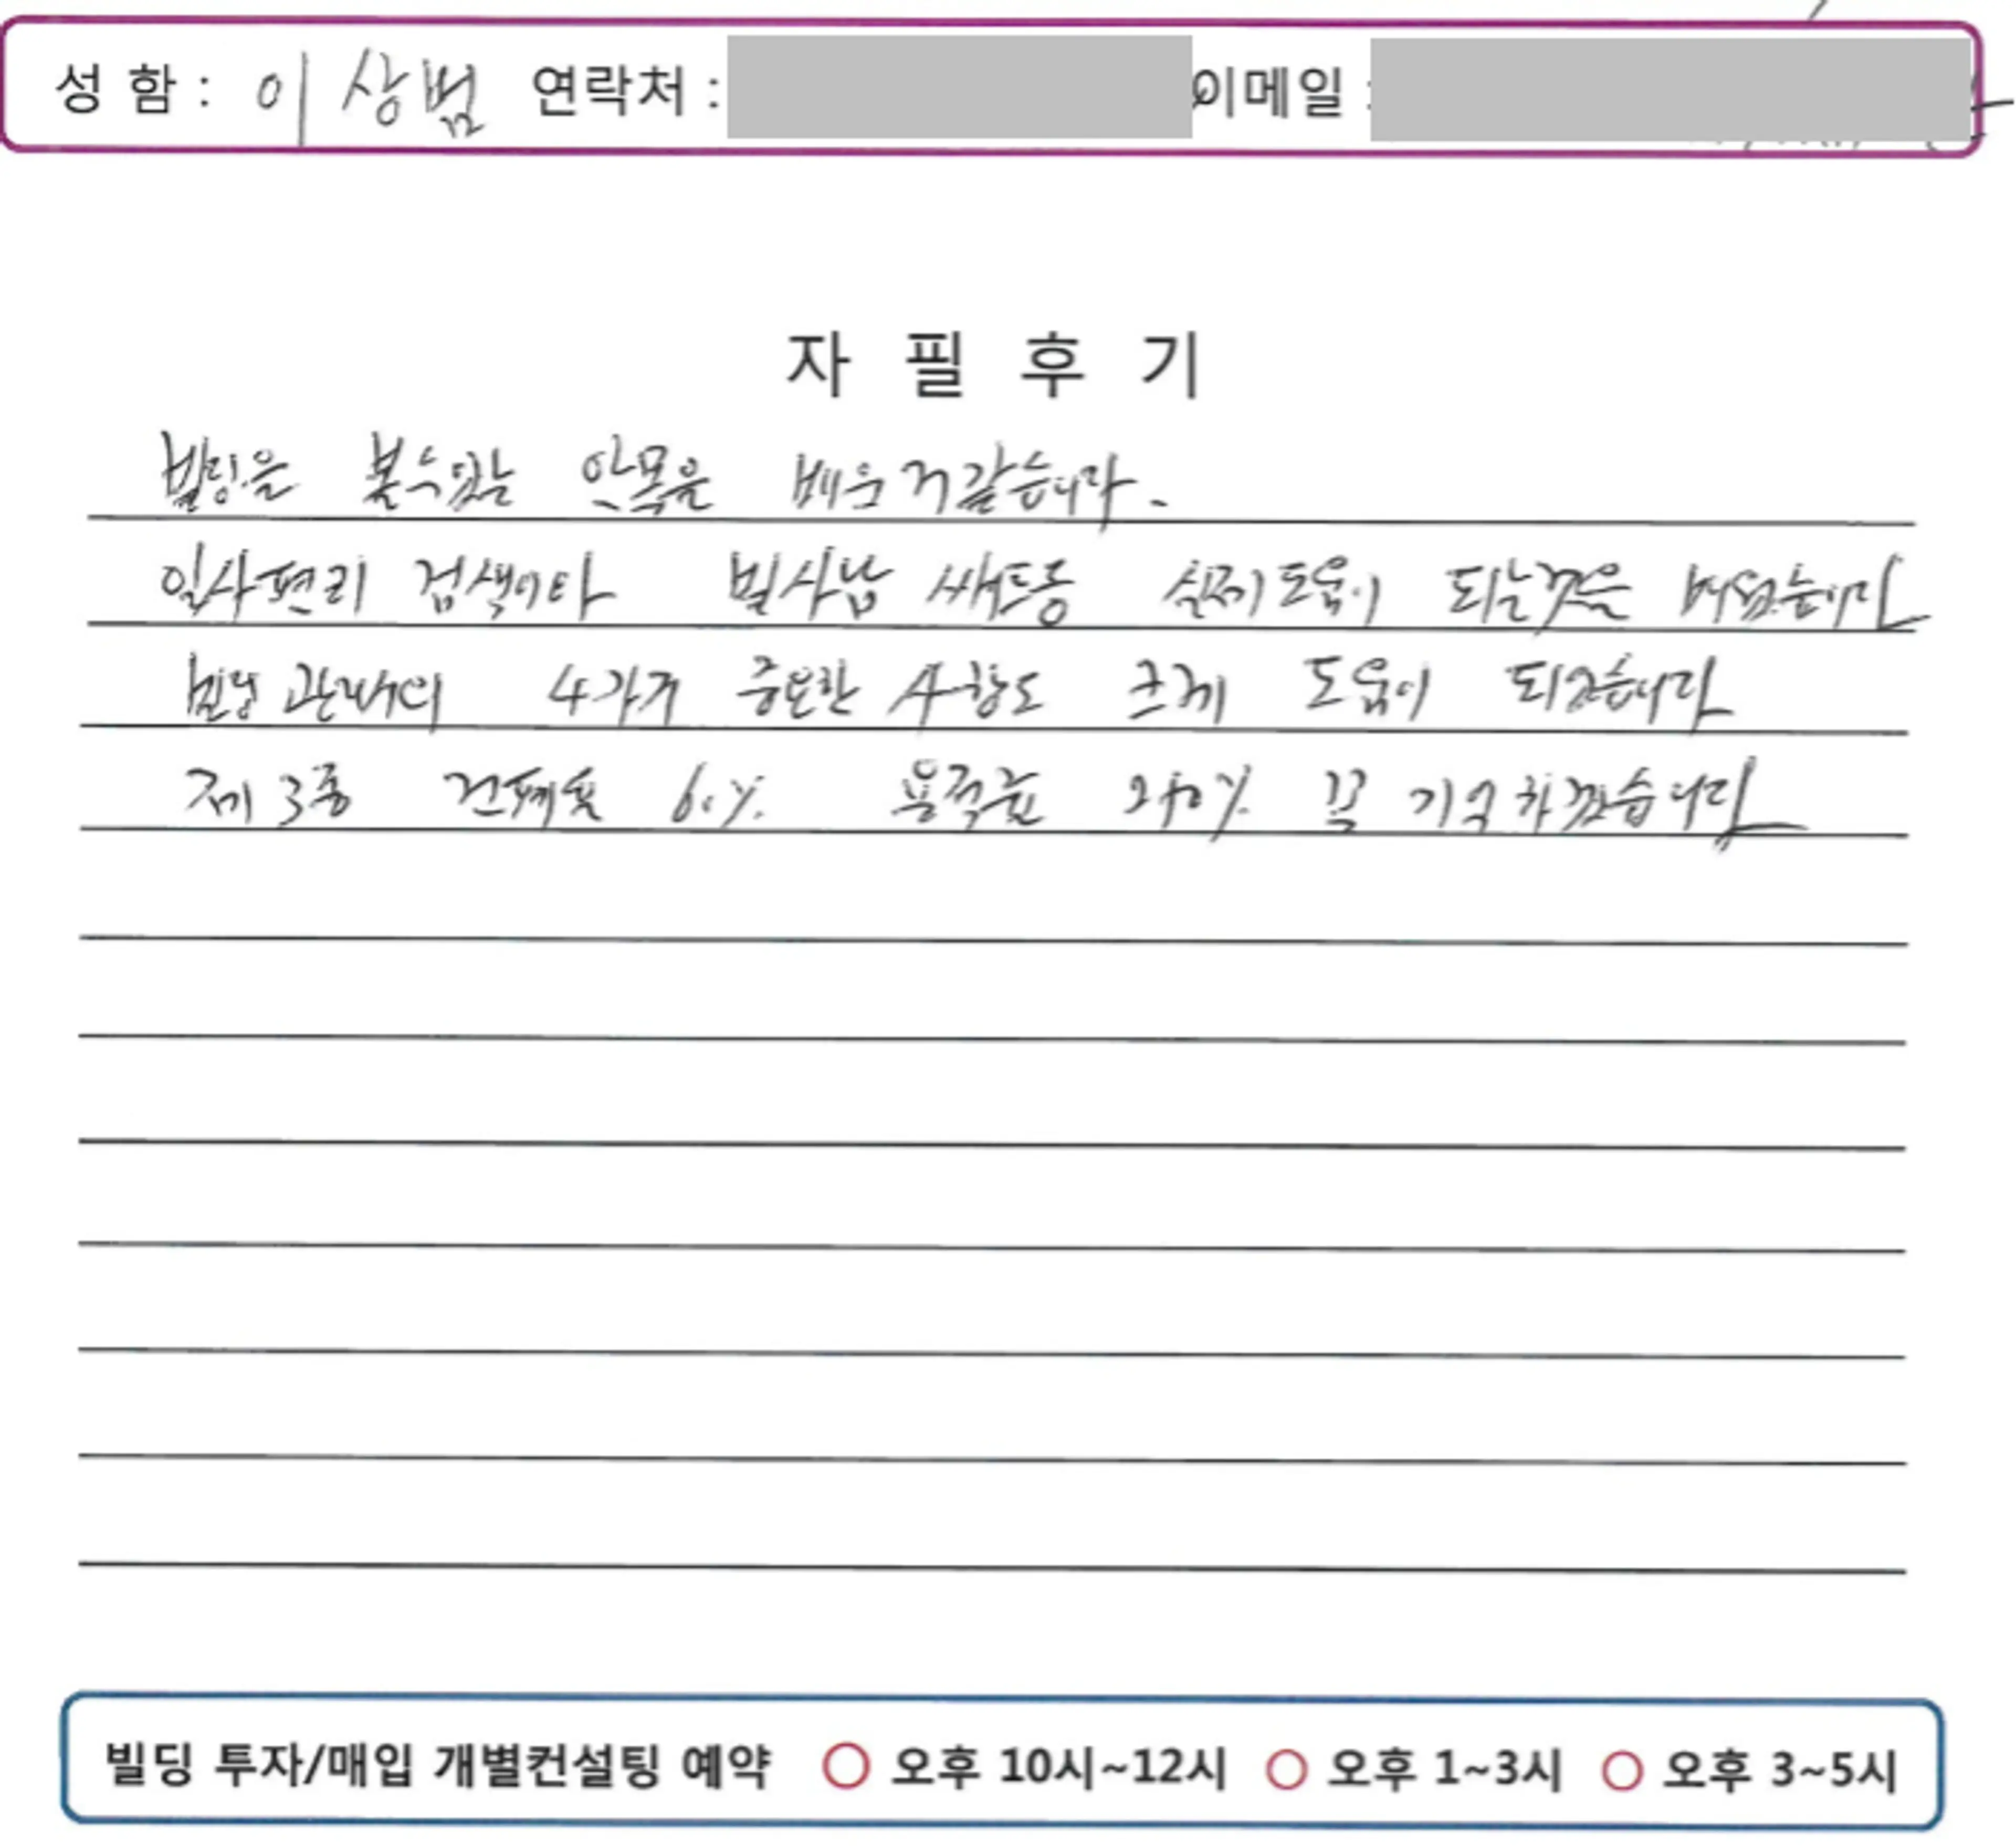 성 함 : 이상범 연락처 : 이메일 :
자 필 후 기
빌딩을 볼수있는 안목을 배운거같습니다.
일사편리 검색이타 빌사남 쌔드동 실제도움이 되는것을 배웠습니다
빌딩관리의 4가지 중요한 사항도 크게 도움이 되었습니다
제3종 건폐율 60% 용적율 250% 꼭 기억하겠습니다
빌딩 투자/매입 개별컨설팅 예약 ○ 오후 10시~12시 ○ 오후 1~3시 ○ 오후 3~5시